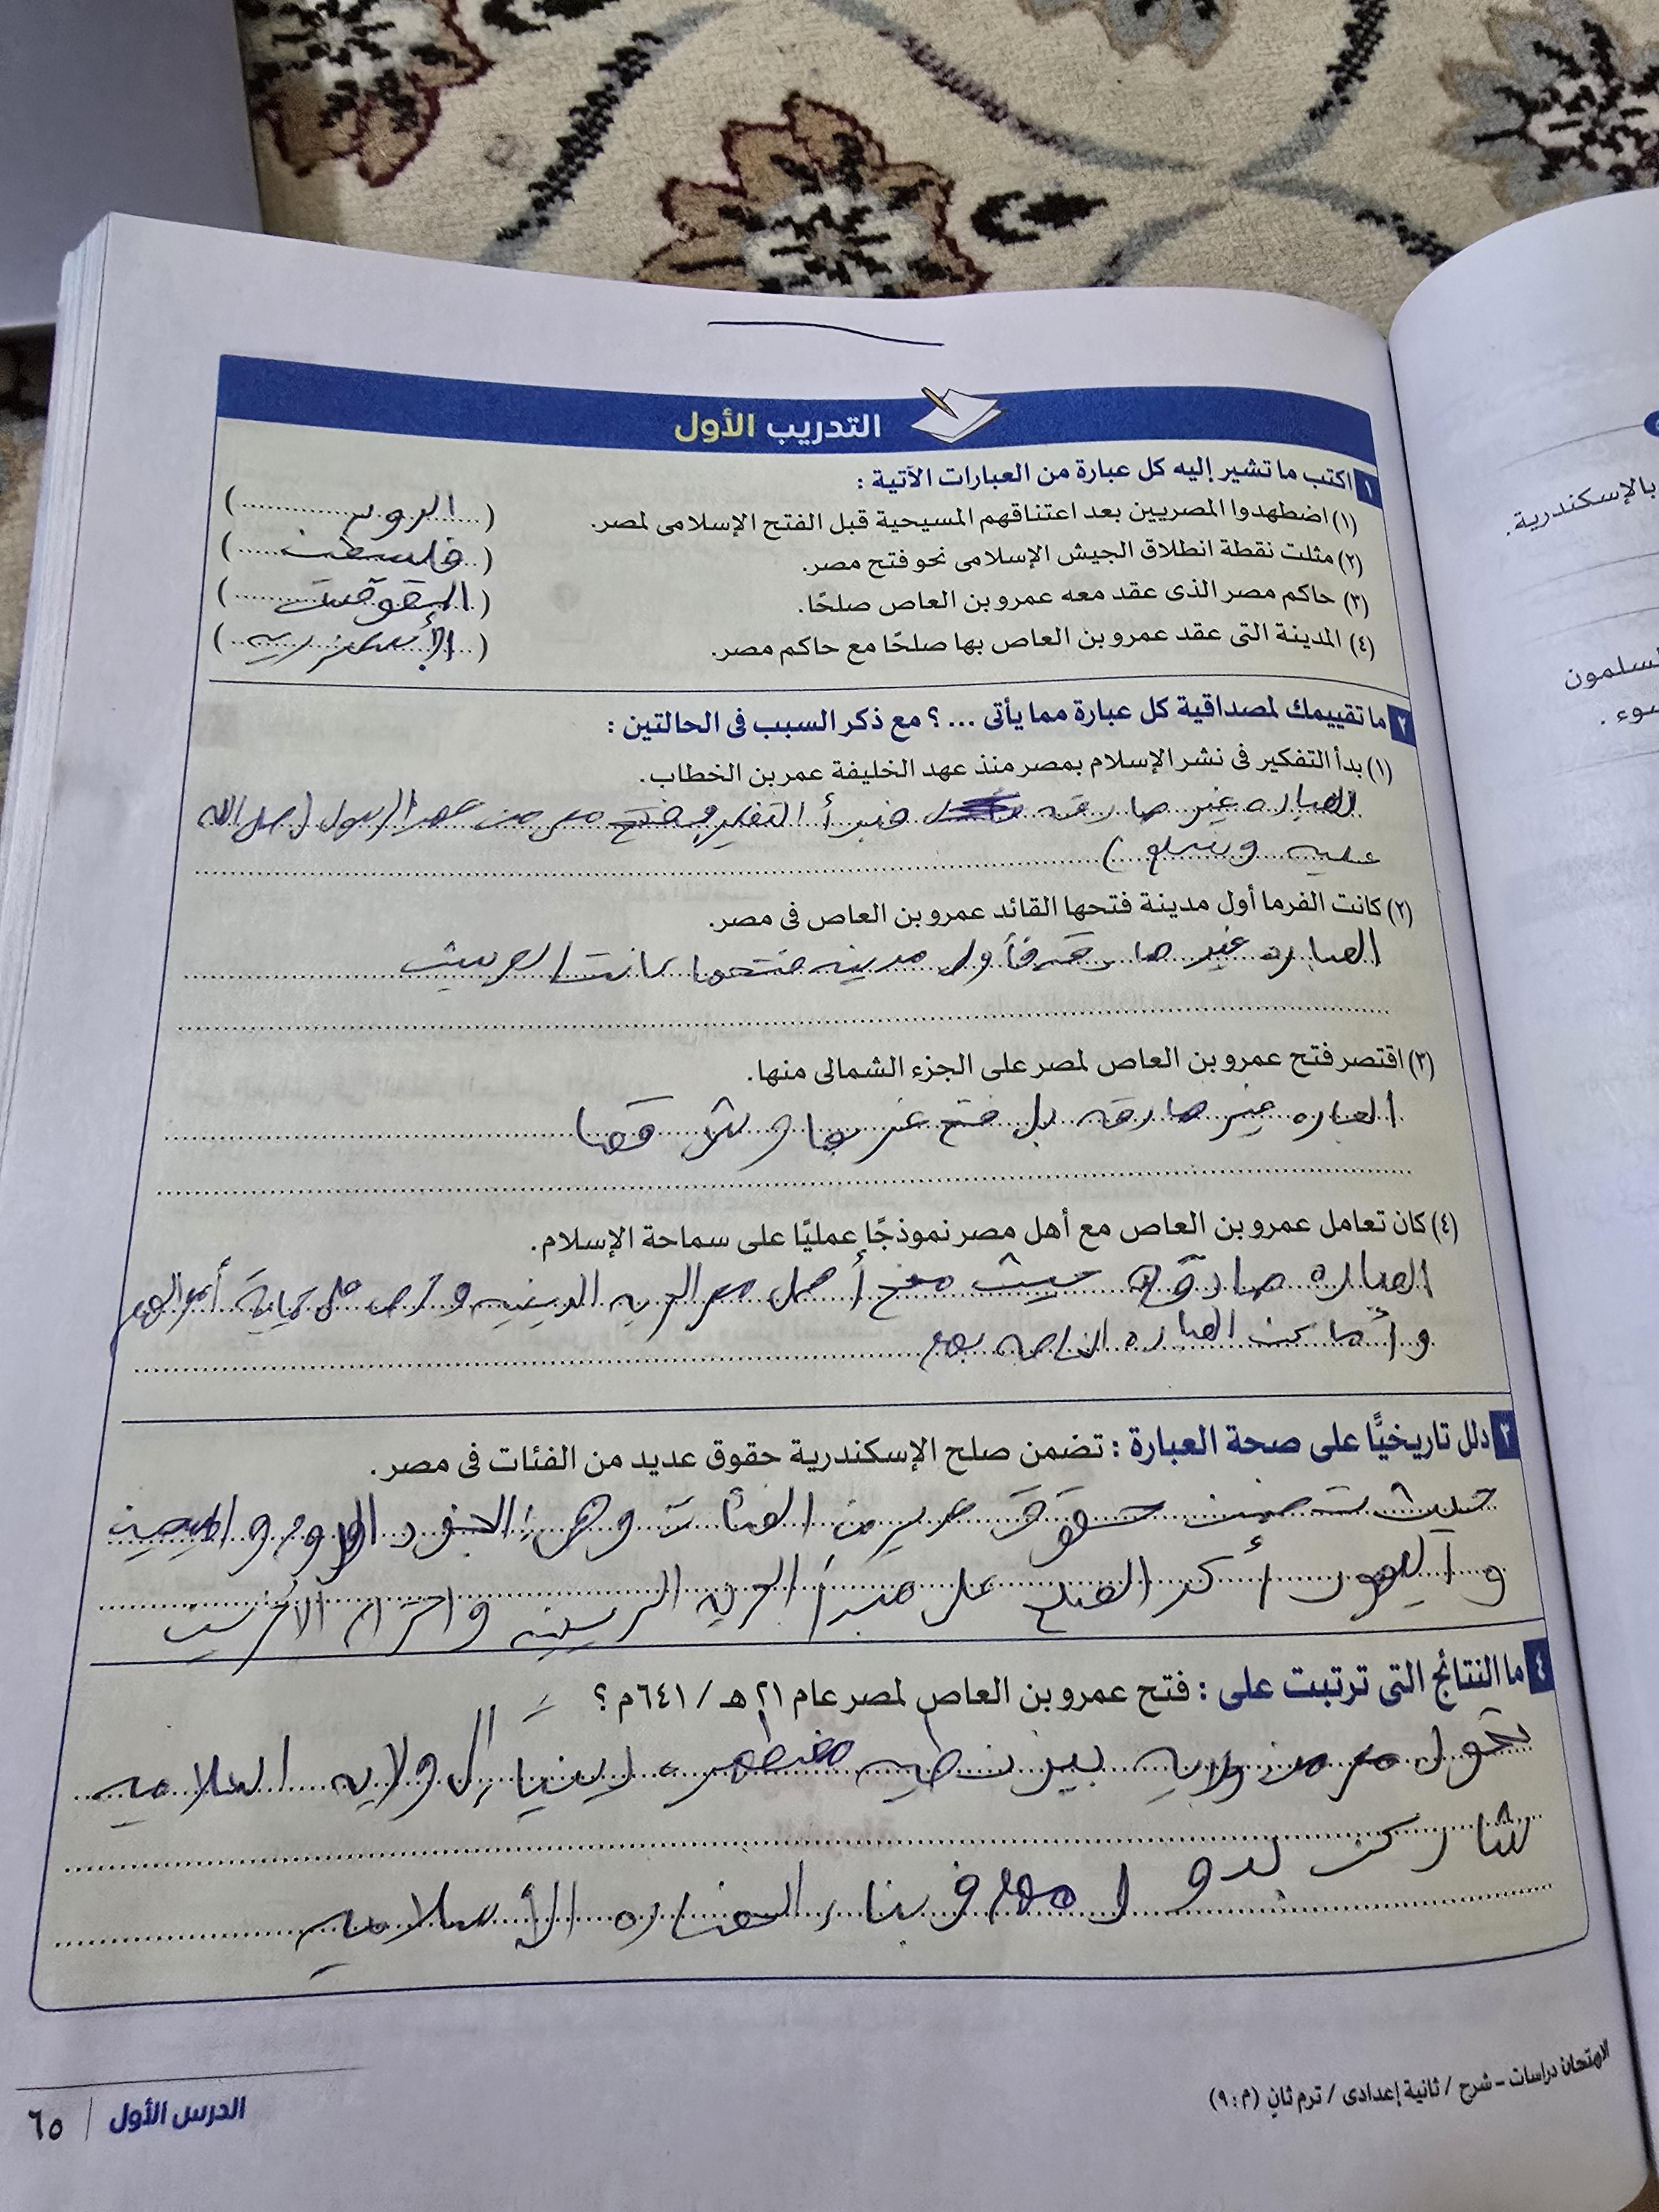 التدريب الأول
١ اكتب ما تشير إليه كل عبارة من العبارات الآتية :
(١) اضطهدوا المصريين بعد اعتناقهم المسيحية قبل الفتح الإسلامى لمصر. (الروم)
(٢) مثلت نقطة انطلاق الجيش الإسلامى نحو فتح مصر. (فلسطين)
(٣) حاكم مصر الذى عقد معه عمرو بن العاص صلحًا. (المقوقس)
(٤) المدينة التى عقد عمرو بن العاص بها صلحًا مع حاكم مصر. (الأسكندريه)
٢ ما تقييمك لمصداقية كل عبارة مما يأتى ... ؟ مع ذكر السبب فى الحالتين :
(١) بدأ التفكير فى نشر الإسلام بمصر منذ عهد الخليفة عمر بن الخطاب.
العباره غير صادقه فبدأ التفكير فتح مصر من عهد الرسول (صل الله
عليه وسلم)
(٢) كانت الفرما أول مدينة فتحها القائد عمرو بن العاص فى مصر.
العباره غير صادقه فأول مدينه فتحها كانت العريش
(٣) اقتصر فتح عمرو بن العاص لمصر على الجزء الشمالى منها.
العباره غير صادقه بل فتح غربها وشرقها
(٤) كان تعامل عمرو بن العاص مع أهل مصر نموذجًا عمليًا على سماحة الإسلام.
العباره صادقة حيث منح أهل مصر الحريه الدينيه وحرص على حماية أموالهم
وأماكن العباده الخاصه بهم
٣ دلل تاريخيًّا على صحة العبارة : تضمن صلح الإسكندرية حقوق عديد من الفئات فى مصر.
حيث تضمنت حقوق عديد من الفئات وهى: الجنود الروم والمسيحين
واليهود أكد الصلح على مبدأ الحريه الدينيه واحترام الأخرين
٤ ما النتائج التى ترتبت على : فتح عمرو بن العاص لمصر عام ٢١ هـ / ٦٤١ م ؟
تحول مصر من ولايه بيزنطيه مضطهده دينيًا إلى ولايه اسلاميه
شاركت بدور مهم فى بناء الحضاره الأسلاميه
الامتحان دراسات - شرح / ثانية إعدادى / ترم ثان (م : ٩)
الدرس الأول ٦٥
بالإسكندرية.